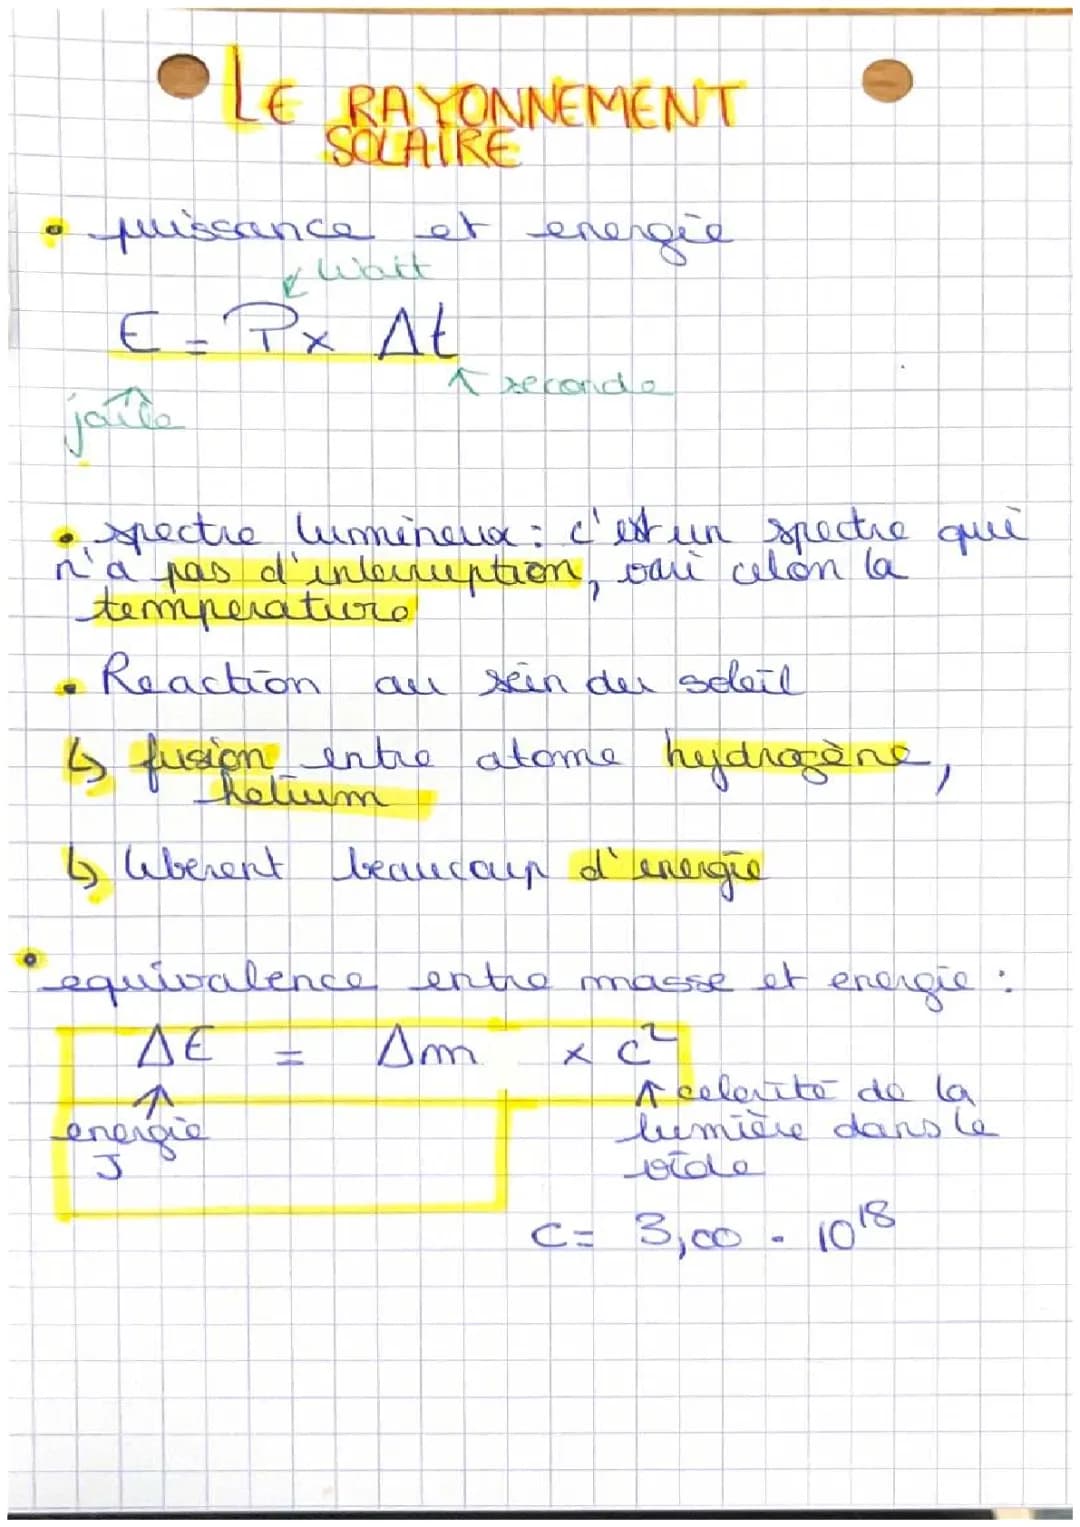 LE RAYONNEMENT
SOLAIRE
• puissance et energie
↙ Watt
E = P x Δt
↑ seconde
joule
• spectre lumineux : c'est un spectre qui
n'a pas d'interruption, vari celon la
temperature
• Reaction au sein du soleil
↳ fusion entre atome hydrogène,
helium
↳ liberent beaucoup d'energie
• equivalence entre masse et energie :
ΔE = Δm x c²
↑ celerité de la
energie lumière dans le
J vide
c = 3,00 . 10¹⁸